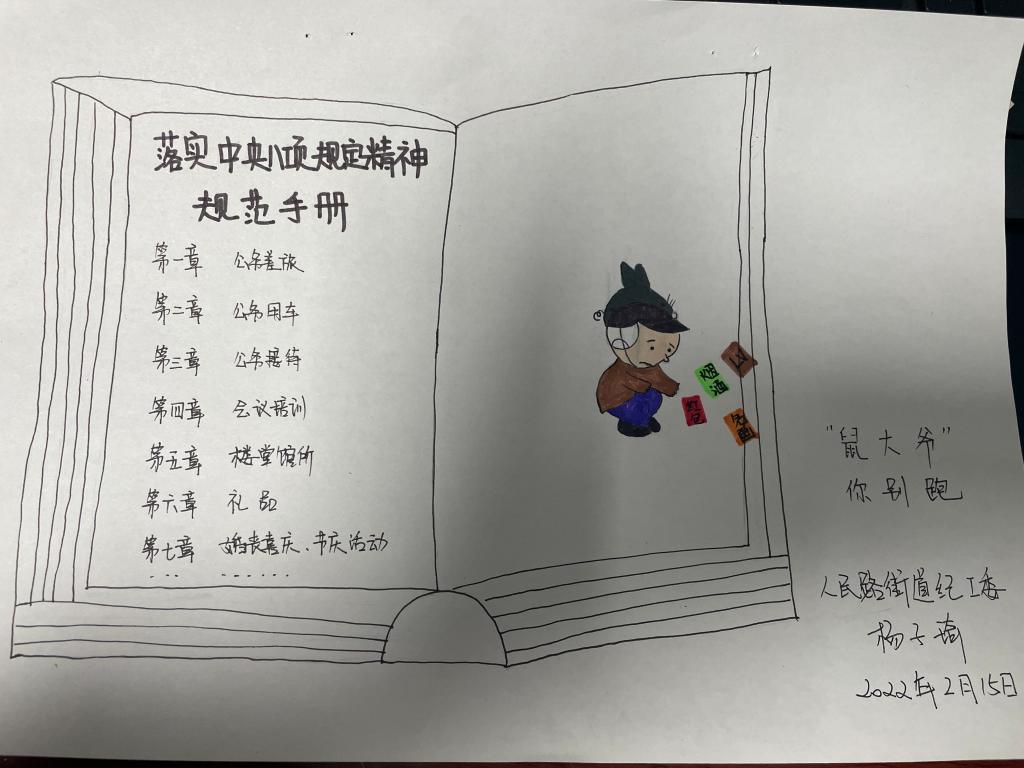 落实中央八项规定精神
规范手册
第一章 公务差旅
第二章 公务用车
第三章 公务接待
第四章 会议培训
第五章 楼堂馆所
第六章 礼品
第七章 婚丧喜庆、节庆活动
... ......
烟酒
红包
"鼠大爷"
你别跑
人民路街道纪工委
杨子琦
2022年2月15日